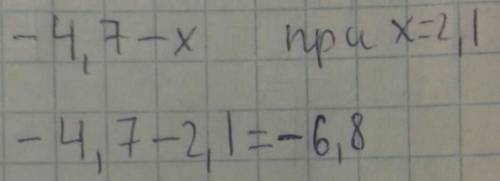 -4,7-x при x=2,1
-4,7-2,1=-6,8